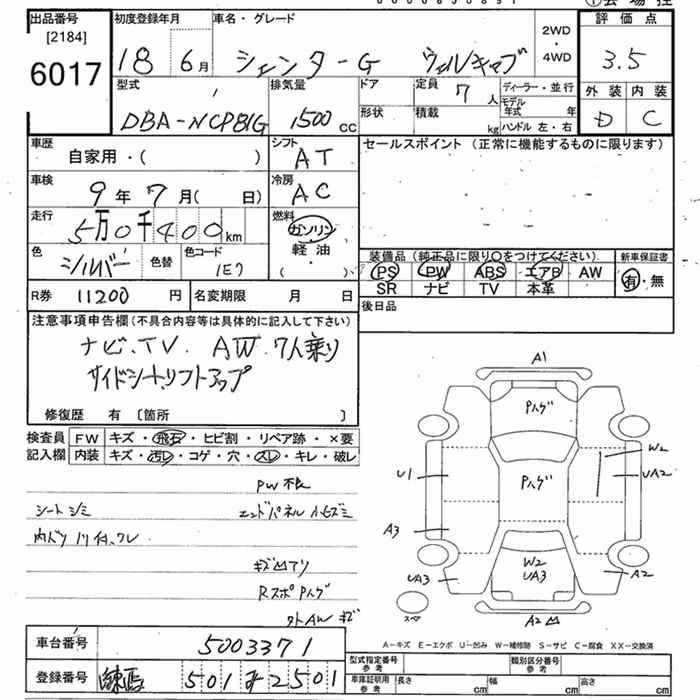 出品番号 初度登録年月 車名・グレード 評価点
[2184]
6017
18 6月 シエンターG ウェルキャブ 2WD・4WD 3.5
型式 排気量 ドア 定員 7人 ディーラー・並行 外装 内装
DBA-NCP81G 1500cc 形状 積載 kg モデル年式 年 ハンドル 左・右 D C
車歴 自家用・( ) シフト AT セールスポイント (正常に機能するものに限ります)
車検 9年7月( 日) 冷房 AC
走行 5万0千400km 燃料 ガソリン・軽油・( )
色 シルバー 色替 色コード 1E7
装備品 (純正品に限り〇をつけてください) 新車保証書
PS PW ABS エアB AW 有・無
SR ナビ TV 本革
R券 11200円 名変期限 月 日 後日品
注意事項申告欄(不具合内容等は具体的に記入して下さい)
ナビ.TV. AW.7人乗り
サイドシート.リフトアップ
修復歴 有 〔箇所 〕
検査員 FW キズ・飛石・ヒビ割・リペア跡・×要
記入欄 内装 キズ・汚レ・コゲ・穴・スレ・キレ・破レ
シートシミ エンドパネル
キズ凹アリ
外AWキズ
A1
Pハゲ
W2
U1 Pハゲ UA2
A3
W2
UA3 UA3 A2
スペア A2凹
A-キズ E-エクボ U-凹み W-補修跡 S-サビ C-腐食 XX-交換済
車台番号 5003371
登録番号 練馬 501 2501
型式指定番号 参考 類別区分番号 参考
車庫証明用 参考 長さ cm 幅 cm 高さ cm